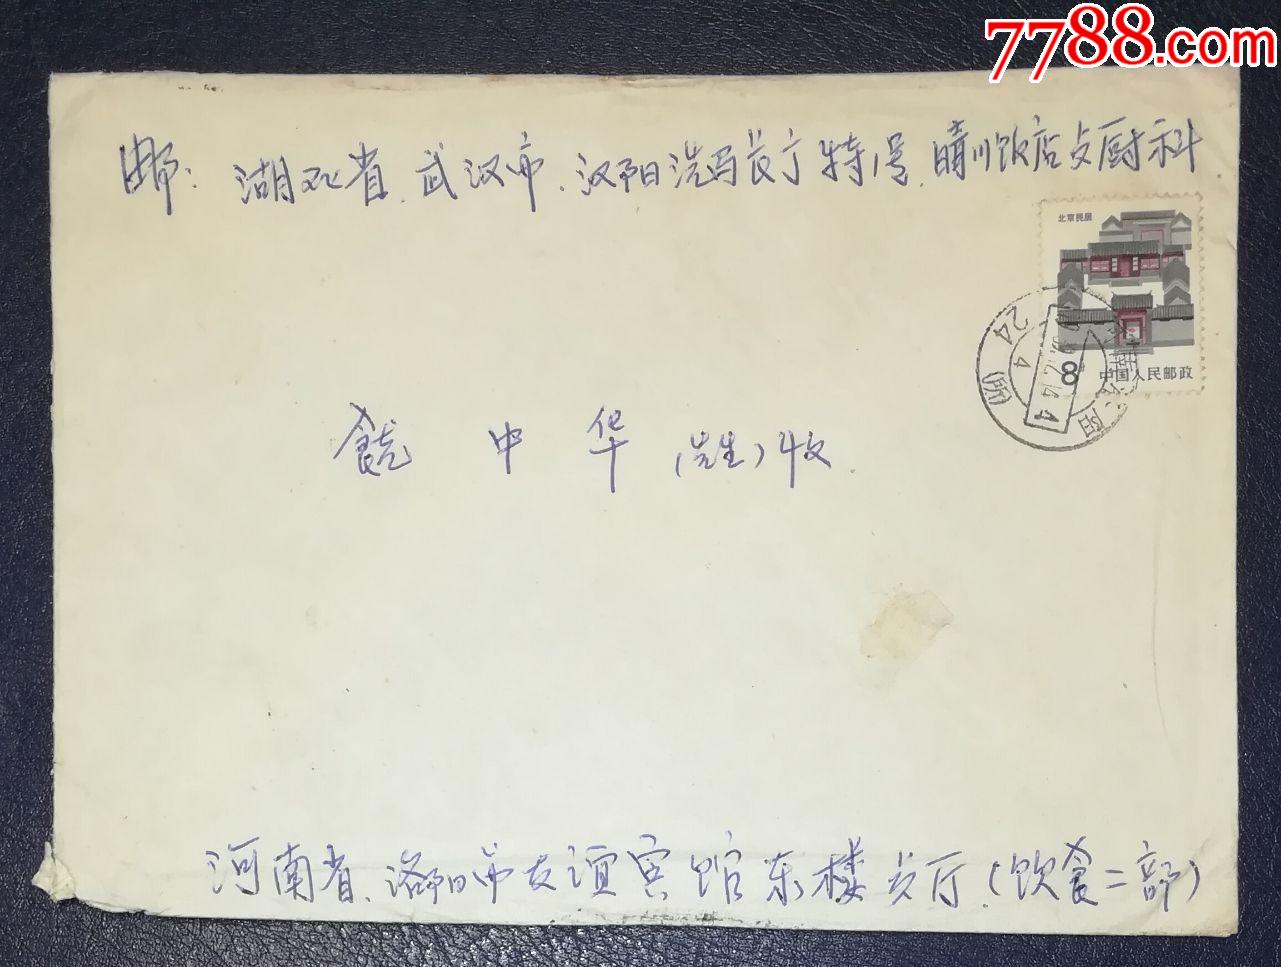 7788.com
邮：湖北省.武汉市.汉阳洗马长街特1号.晴川饭店点厨科
北京民居
8
中国人民邮政
24
4
(所)
阳
饶中华（先生）收.
河南省.洛阳市友谊宾馆东楼餐厅.（饮食二部）